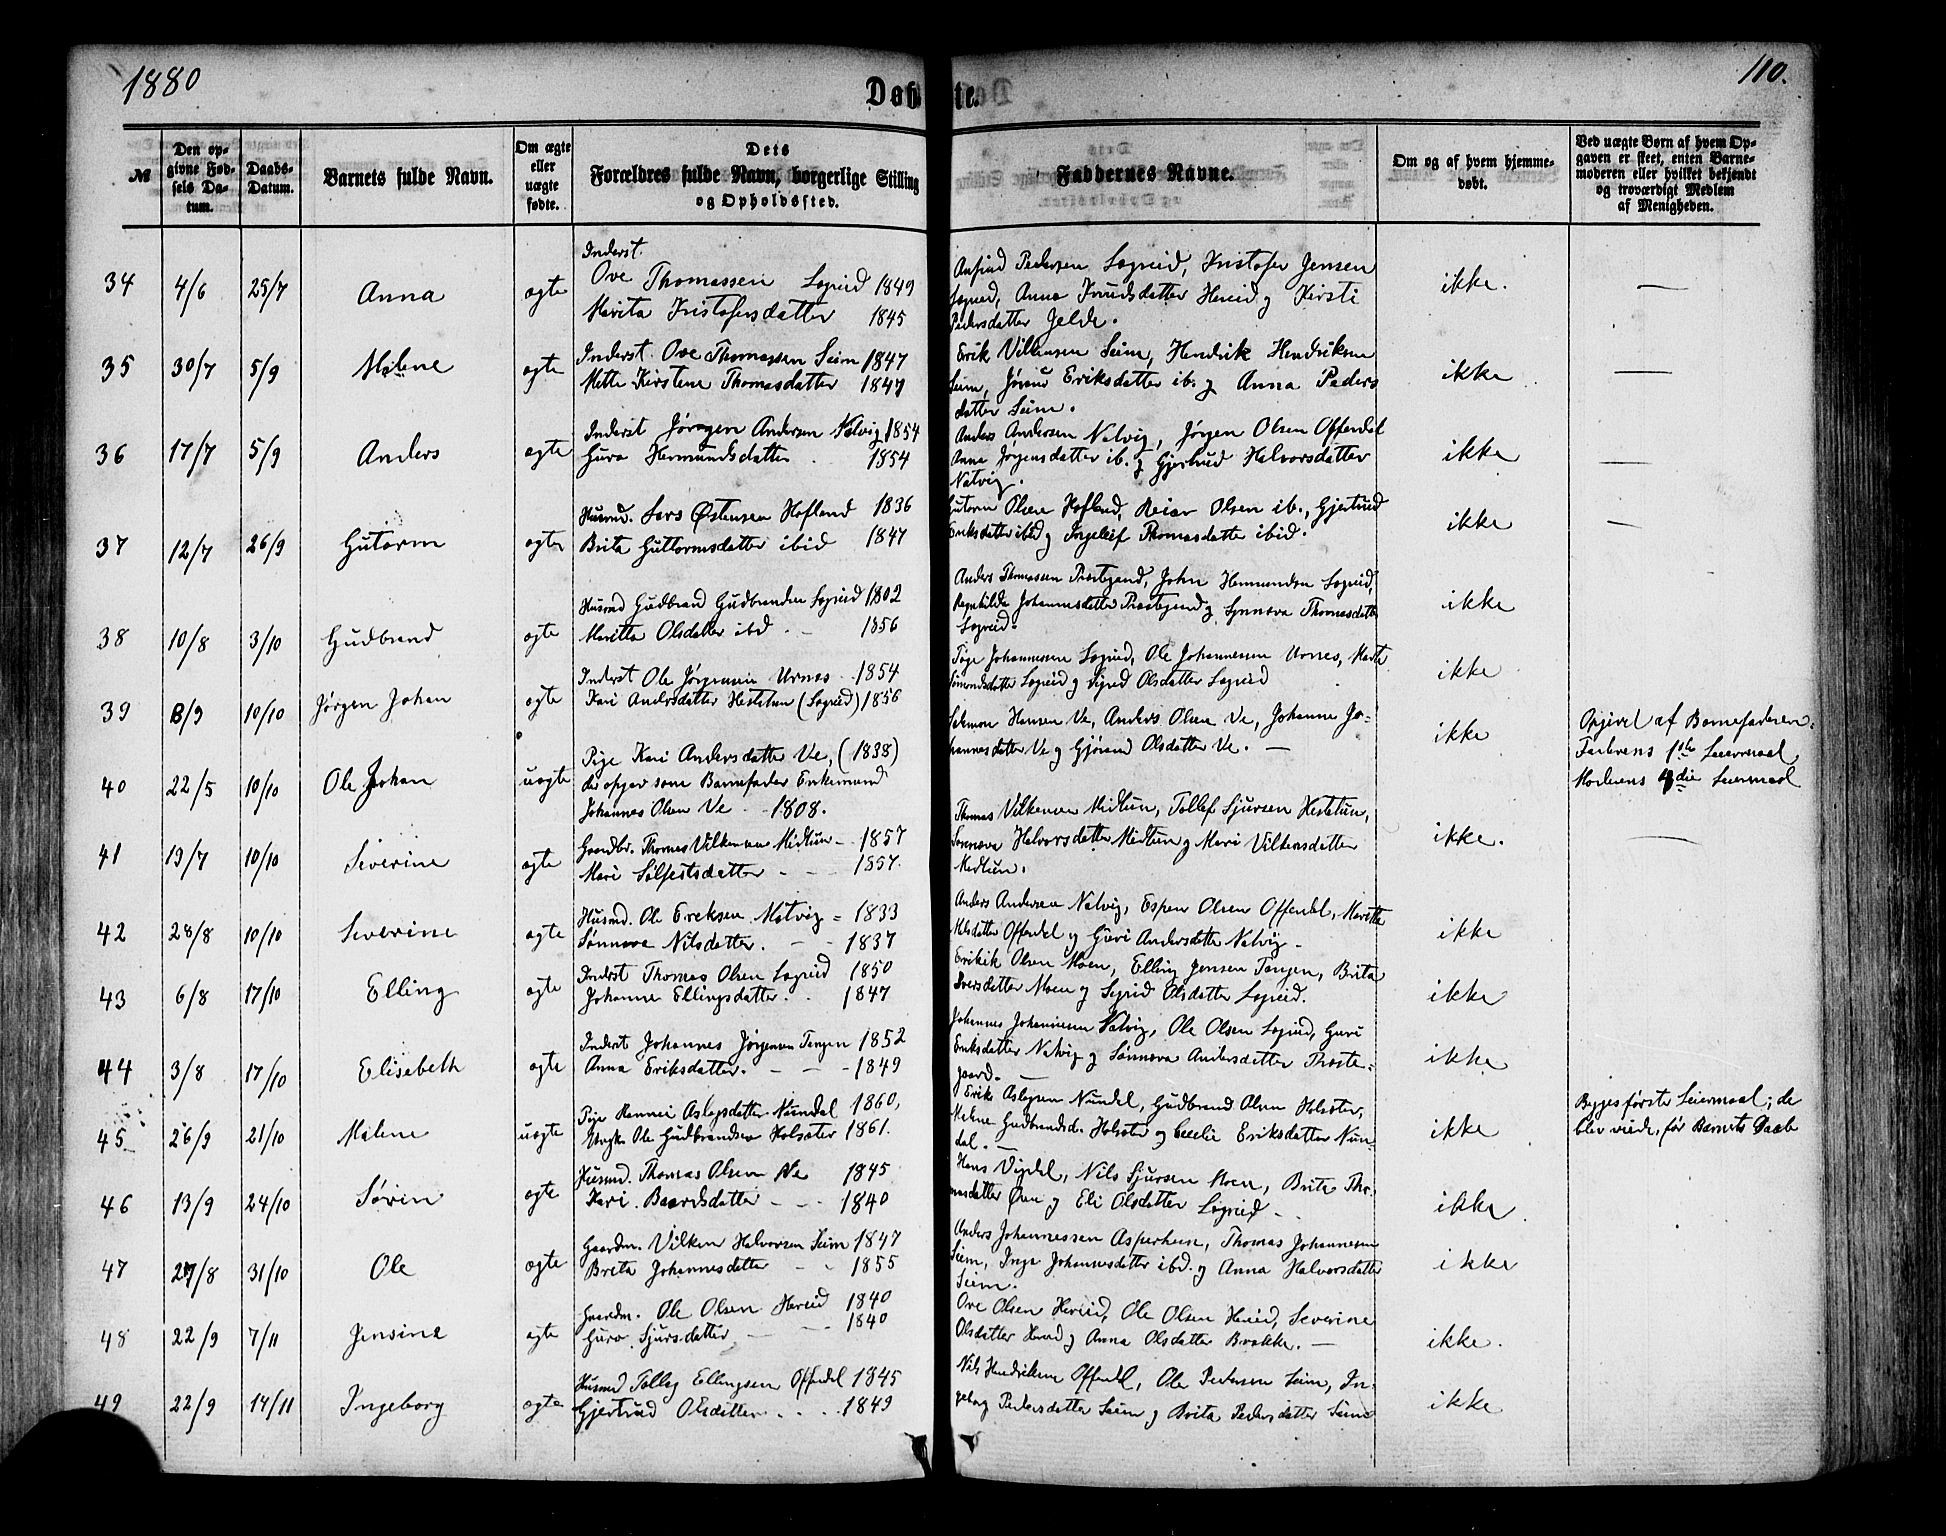 1880
Døbte.
110.
№
Den op-
givne Fød-
sels Da-
tum.
Daabs-
Datum.
Barnets fulde Navn.
Om ægte
eller
uægte
fødte.
Dets
Forældres fulde Navn, borgerlige Stilling
og Opholdssted.
Faddernes Navne.
Om og af hvem hjemme-
døbt.
Ved uægte Børn af hvem Op-
gaven er skeet, enten Barne-
moderen eller hvilket bekjendt
og troværdigt Medlem
af Menigheden.
34 4/6 25/7 Anna ægte
Inderst.
Ove Thomassen Søgnid 1849
Marita Kristofersdatter 1845
Anfind Pedersen Søgneid, Kristofer Jensen
Søgneid, Anna Knudsdatter Hereid og Kirsti
Pedersdatter Jelde.
ikke. —
35 30/7 5/9 Malene ægte
Inderst. Ove Thomassen Seim 1847
Mette Kirstine Thomasdatter 1847
Erik Vilkensen Seim, Hendrik Hendriksen
Seim, Jørund Eriksdatter ib. og Anna Peders
datter Seim.
ikke —
36 17/7 5/9 Anders ægte
Inderst Jørgen Andersen Natvig 1854
Guro Hermundsdatter 1854
Anders Andersen Natvig, Jørgen Olsen Offerdal
Anna Jørgensdatter ib. og Gjertrud Halvorsdatter
Natvig.
ikke —
37 12/7 26/9 Gutorm ægte
Husmd. Lars Østensen Hofland 1836
Brita Guttormsdatter ibid 1847
Gutorm Olsen Hofland, Reiar Olsen ib., Gjertrud
Eriksdatter ibid og Ingeleif Thomasdatter ibid.
ikke —
38 10/8 3/10 Gudbrand ægte
Husmd Gudbrand Gudbrandsen Søgneid 1802
Maritta Olsdatter ibd. — 1856
Anders Thomassen Prestegaard, John Hermundsen Søgneid,
Ragnhilda Johannesdatter Prestegaard og Synneva Thomasdatter
Søgneid.
ikke
39 8/9 10/10 Jørgen Johan ægte
Inderst Ole Jørgensen Urnes 1854
Kari Andersdatter Hestetun (Søgneid) 1856
Tøge Johannessen Søgneid, Ole Johannessen Urnes, Marte
Simondsdatter Søgneid og Sigrid Olsdatter Søgneid
ikke
40 22/5 10/10 Ole Johan uægte
Pige Kari Andersdatter Ve, (1838)
der opgav som Barnefader Enkemand
Johannes Olsen Ve 1808.
Salamon Hansen Ve, Anders Olsen Ve, Johanne Jo-
hannesdatter Ve og Gjørund Olsdatter Ve. —
ikke
Opgivet af Barnefaderen.
Faderens 1ste Leiermaal,
Moderens 4die Leiermaal
41 19/7 10/10 Severine ægte
Gaardbr. Thomas Vilkensen Midtun 1857
Mari Sølfestsdatter 1857.
Thomas Vilkensen Midtun, Tollef Sjursen Hestetun,
Sønneva Halvorsdatter Midtun og Mari Vilkensdatter
Midtun.
ikke. —
42 28/8 10/10 Severine ægte
Husmd. Ole Eriksen Natvig 1833
Sønneva Nilsdatter. — 1837
Anders Andersen Natvig, Espen Olsen Offerdal, Maritta
Nilsdatter Offerdal og Guri Andersdatter Natvig —
ikke
43 6/8 17/10 Elling ægte
Inderst Thomas Olsen Søgneid 1850
Johanne Ellingsdatter. 1847
Erik Olsen Moen, Elling Jensen Tangen, Brita
Iversdatter Moen og Sigrid Olsdatter Søgneid.
ikke
44 3/8 17/10 Elisabeth ægte
Inderst Johannes Jørgensen Tangen 1852
Anna Eriksdatter. — 1849
Johannes Johannessen Natvig, Ole Olsen Søgneid, Guri
Eriksdatter Natvig og Sønneva Andersdatter Preste-
gaard. —
ikke
45 26/9 21/10 Malene uægte
Pige Rannei Aslagsdatter Nundal 1860,
Ungk. Ole Gudbrandsen Holsæter 1861.
Erik Aslagsen Nundal, Gudbrand Olsen Holsæter,
Malene Gudbrandsd. Holsæter og Cecelie Eriksdatter Nun-
dal. —
ikke
Begges første Leiermaal; de
blev viede, før Barnets Daab
46 13/9 24/10 Sørin ægte
Husmd. Thomas Olsen Ve 1845
Kari Baardsdatter — 1840
Hans Vigdal, Nils Sjursen Moen, Brita Tho-
masdatter Øren og Eli Olsdatter Søgneid —
ikke
47 27/8 31/10 Ole ægte
Gaardm. Vilken Halvorsen Seim 1847
Brita Johannesdatter 1855
Anders Johannessen Asperheim, Thomas Johannessen
Seim, Inga Johannesdatter ibd. og Anna Halvorsdatter
Seim.
ikke
48 22/9 7/11 Jensine ægte
Gaardm. Ole Olsen Hereid 1840
Guro Sjursdatter — 1840
Ove Olsen Hereid, Ole Olsen Hereid, Severine
Olsdatter Hereid og Anna Olsdatter Brække. —
ikke.
49 22/9 14/11 Ingeborg ægte
Husmd Tolleg Ellingsen Offerdal 1845
Gjertrud Olsdatter 1849
Nils Hendriksen Offerdal, Ole Pedersen Seim, In-
geborg Pedersdatter Seim og Brita Pedersdatter Seim
ikke